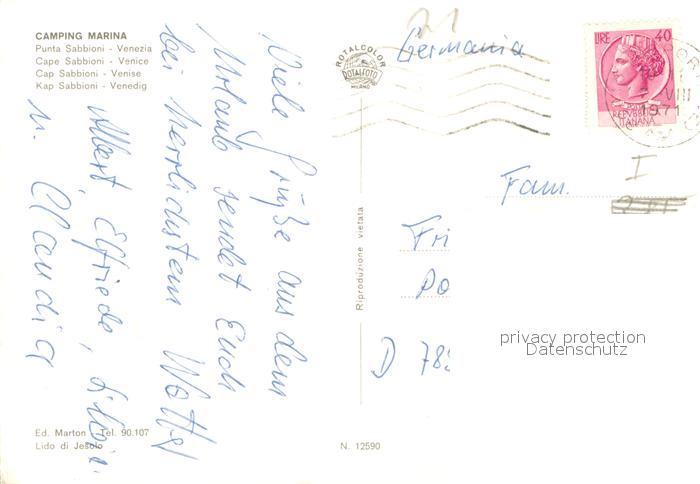 CAMPING MARINA
Punta Sabbioni - Venezia
Cape Sabbioni - Venice
Cap Sabbioni - Venise
Kap Sabbioni - Venedig
Viele Grüße aus dem
Urlaub sendet Euch
bei herrlichstem Wetter
Albert, Elfriede,
u. Claudia
Ed. Marton - Tel. 90.107
Lido di Jesolo
N. 12590
Riproduzione vietata
ROTALCOLOR
ROTALFOTO
MILANO
21
Germania
LIRE 40
REPVBBLICA
ITALIANA
VIII
1971
I
Fam.
Fri
Po
D 782
privacy protection
Datenschutz